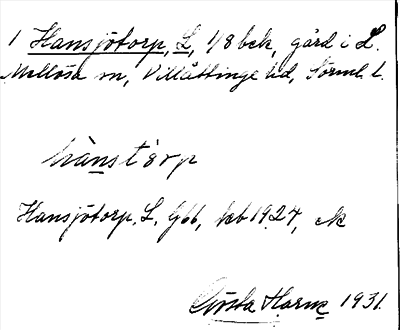 1 Hansjötorp, L, 1/8 bck, gård i L.
Mellösa sn, Villåttinge hd, Sörml. l.
hànstȯrp
Hansjötorp, L. Gbb, kb 1924, ek
Gösta Harne 1931.